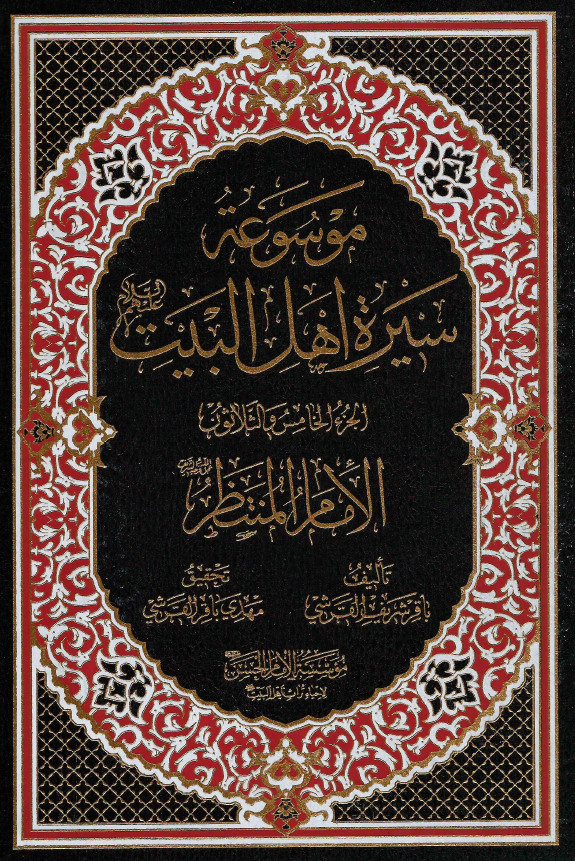 موسوعة
سيرة أهل البيت عليهم السلام
الجزء الخامس والثلاثون
الإمام المنتظر
تأليف
باقر شريف القرشي
تحقيق
مهدي باقر القرشي
مؤسسة الإمام الحسن
لإحياء تراث أهل البيت